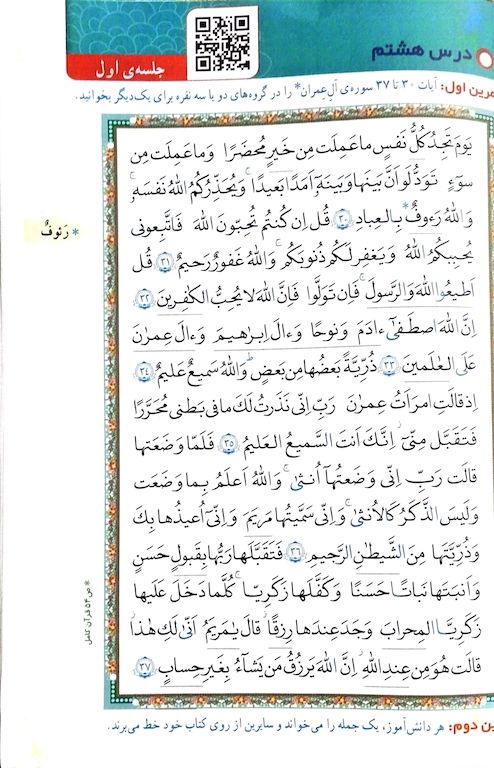 درس هشتم
جلسه‌ی اول
آیات ۳۰ تا ۳۷ سوره‌ی آل عِمران* را در گروه‌های دو یا سه نفره برای یک‌دیگر بخوانید.
يَومَ تَجِدُ كُلُّ نَفسٍ ما عَمِلَت مِن خَيرٍ مُحضَرًا وَ ما عَمِلَت مِن
سوءٍ تَوَدُّ لَو اَنَّ بَينَها وَ بَينَهُ اَمَدًا بَعيدًا وَ يُحَذِّرُكُمُ اللهُ نَفسَهُ
وَ اللهُ رَءوفٌ* بِالعِبادِ ۳۰ قُل اِن كُنتُم تُحِبّونَ اللهَ فَاتَّبِعونى
يُحبِبكُمُ اللهُ وَ يَغفِر لَكُم ذُنوبَكُم وَ اللهُ غَفورٌ رَحيمٌ ۳۱ قُل
اَطيعُوا اللهَ وَ الرَّسولَ فَاِن تَوَلَّوا فَاِنَّ اللهَ لا يُحِبُّ الكٰفِرينَ ۳۲
اِنَّ اللهَ اصطَفىٰٓ ءادَمَ وَ نوحًا وَ ءالَ اِبرٰهيمَ وَ ءالَ عِمرٰنَ
عَلَى العٰلَمينَ ۳۳ ذُرِّيَّةً بَعضُها مِن بَعضٍ وَ اللهُ سَميعٌ عَليمٌ ۳۴
اِذ قالَتِ امرَاَتُ عِمرٰنَ رَبِّ اِنّى نَذَرتُ لَكَ ما فى بَطنى مُحَرَّرًا
فَتَقَبَّل مِنّى اِنَّكَ اَنتَ السَّميعُ العَليمُ ۳۵ فَلَمّا وَضَعَتها
قالَت رَبِّ اِنّى وَضَعتُهآ اُنثىٰ وَ اللهُ اَعلَمُ بِما وَضَعَت
وَ لَيسَ الذَّكَرُ كَالاُنثىٰ وَ اِنّى سَمَّيتُها مَريَمَ وَ اِنّىٓ اُعيذُها بِكَ
وَ ذُرِّيَّتَها مِنَ الشَّيطٰنِ الرَّجيمِ ۳۶ فَتَقَبَّلَها رَبُّها بِقَبولٍ حَسَنٍ
وَ اَنبَتَها نَباتًا حَسَنًا وَ كَفَّلَها زَكَرِيّا كُلَّما دَخَلَ عَلَيها
زَكَرِيَّا المِحرابَ وَجَدَ عِندَها رِزقًا قالَ يٰمَريَمُ اَنّىٰ لَكِ هٰذا
قالَت هُوَ مِن عِندِ اللهِ اِنَّ اللهَ يَرزُقُ مَن يَشآءُ بِغَيرِ حِسابٍ ۳۷
* رَئوفٌ
* ص ۵۴ قرآن کامل
دوم: هر دانش‌آموز، یک جمله را می‌خواند و سایرین از روی کتاب خود خط می‌برند.